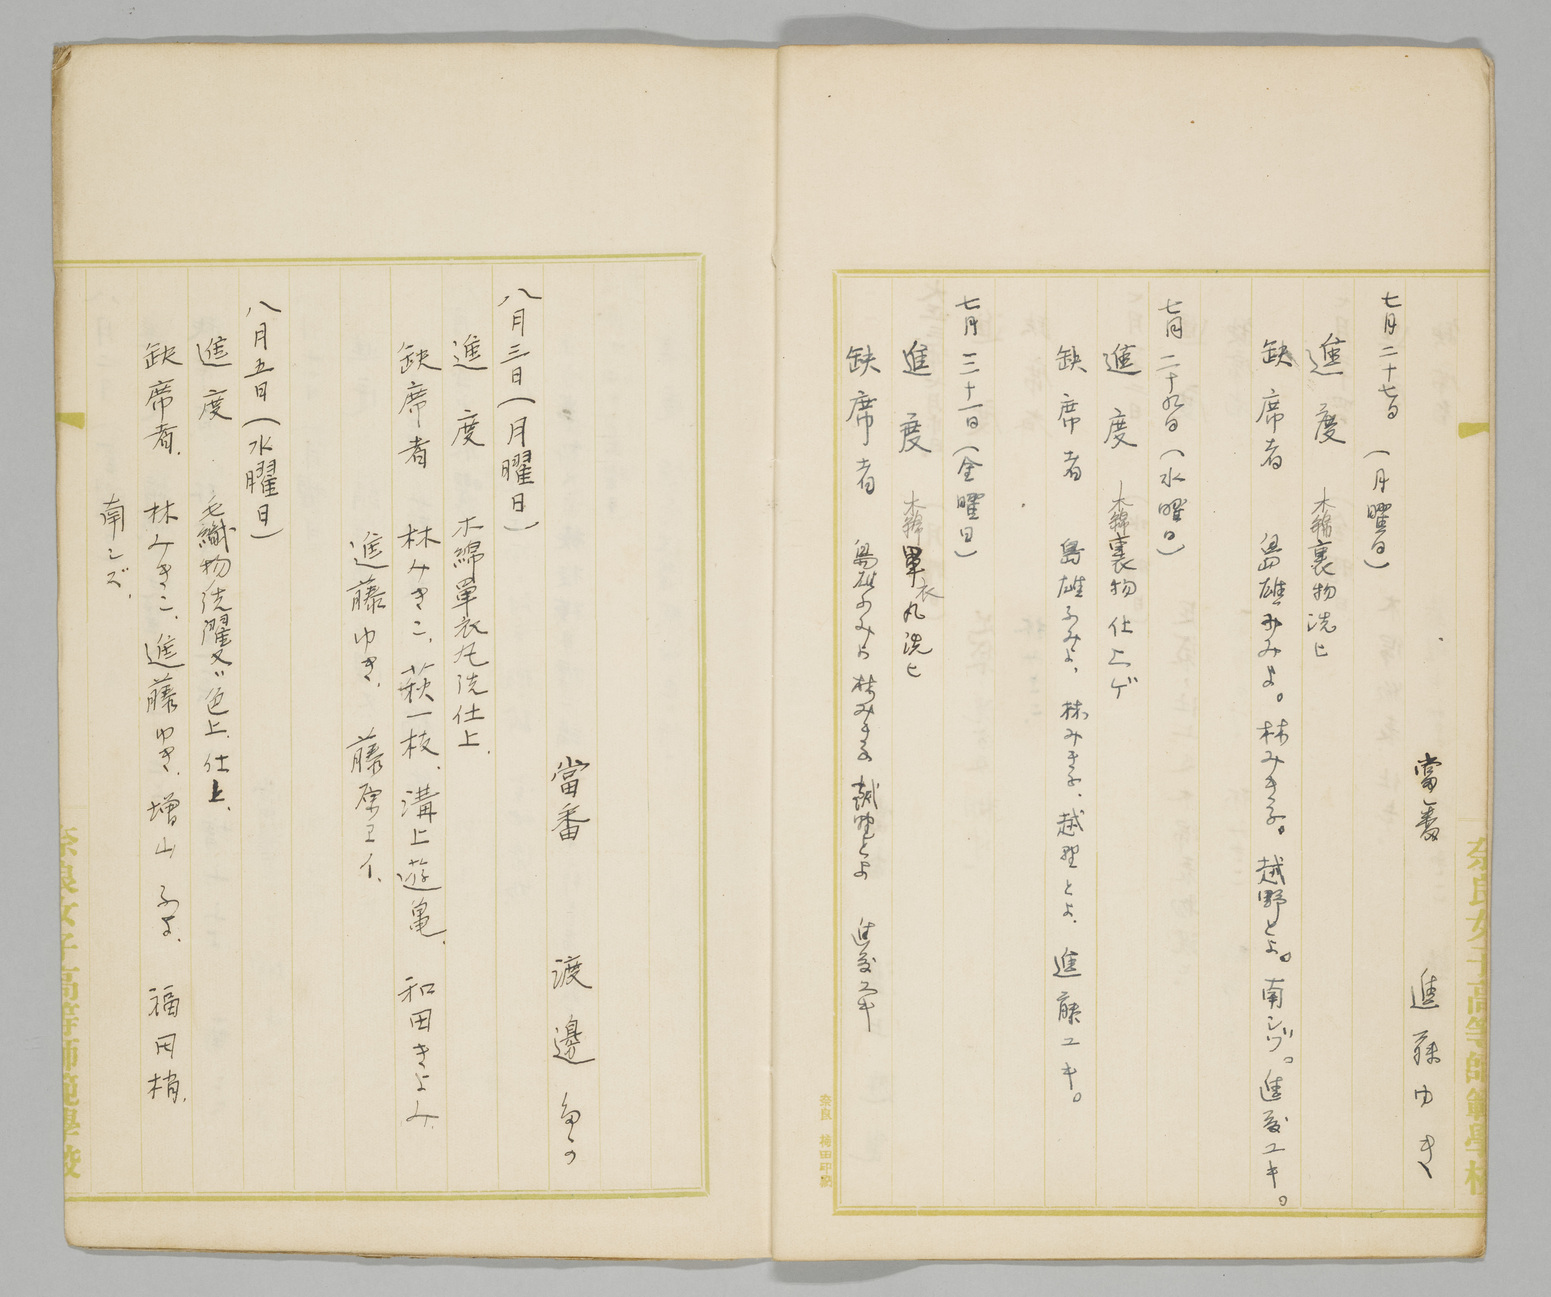 當番 進藤ゆき
七月二十七日(月曜日)
進度 木綿裏物洗ヒ
缺席者 島雄ふみよ。林みき子。越野とよ。南シヅ。進藤ユキ。
七月二十九日(水曜日)
進度 木綿裏物仕上ゲ
缺席者 島雄ふみよ、林みき子、越野とよ、進藤ユキ。
七月三十一日(金曜日)
進度 木綿單衣丸洗ヒ
缺席者 島雄ふみよ 林みき子 越野とよ 進藤ユキ
奈良女子高等師範學校
當番 渡邊
八月三日(月曜日)
進度 木綿單衣丸洗仕上、
缺席者 林みきこ、萩一枝、溝上遊亀、和田きよみ
進藤ゆき、藤原マイ、
八月五日(水曜日)
進度 毛織物洗濯及ビ色上、仕上、
缺席者、林みきこ、進藤ゆき、増山ふよ、福田梢、
南シズ、
奈良女子高等師範學校